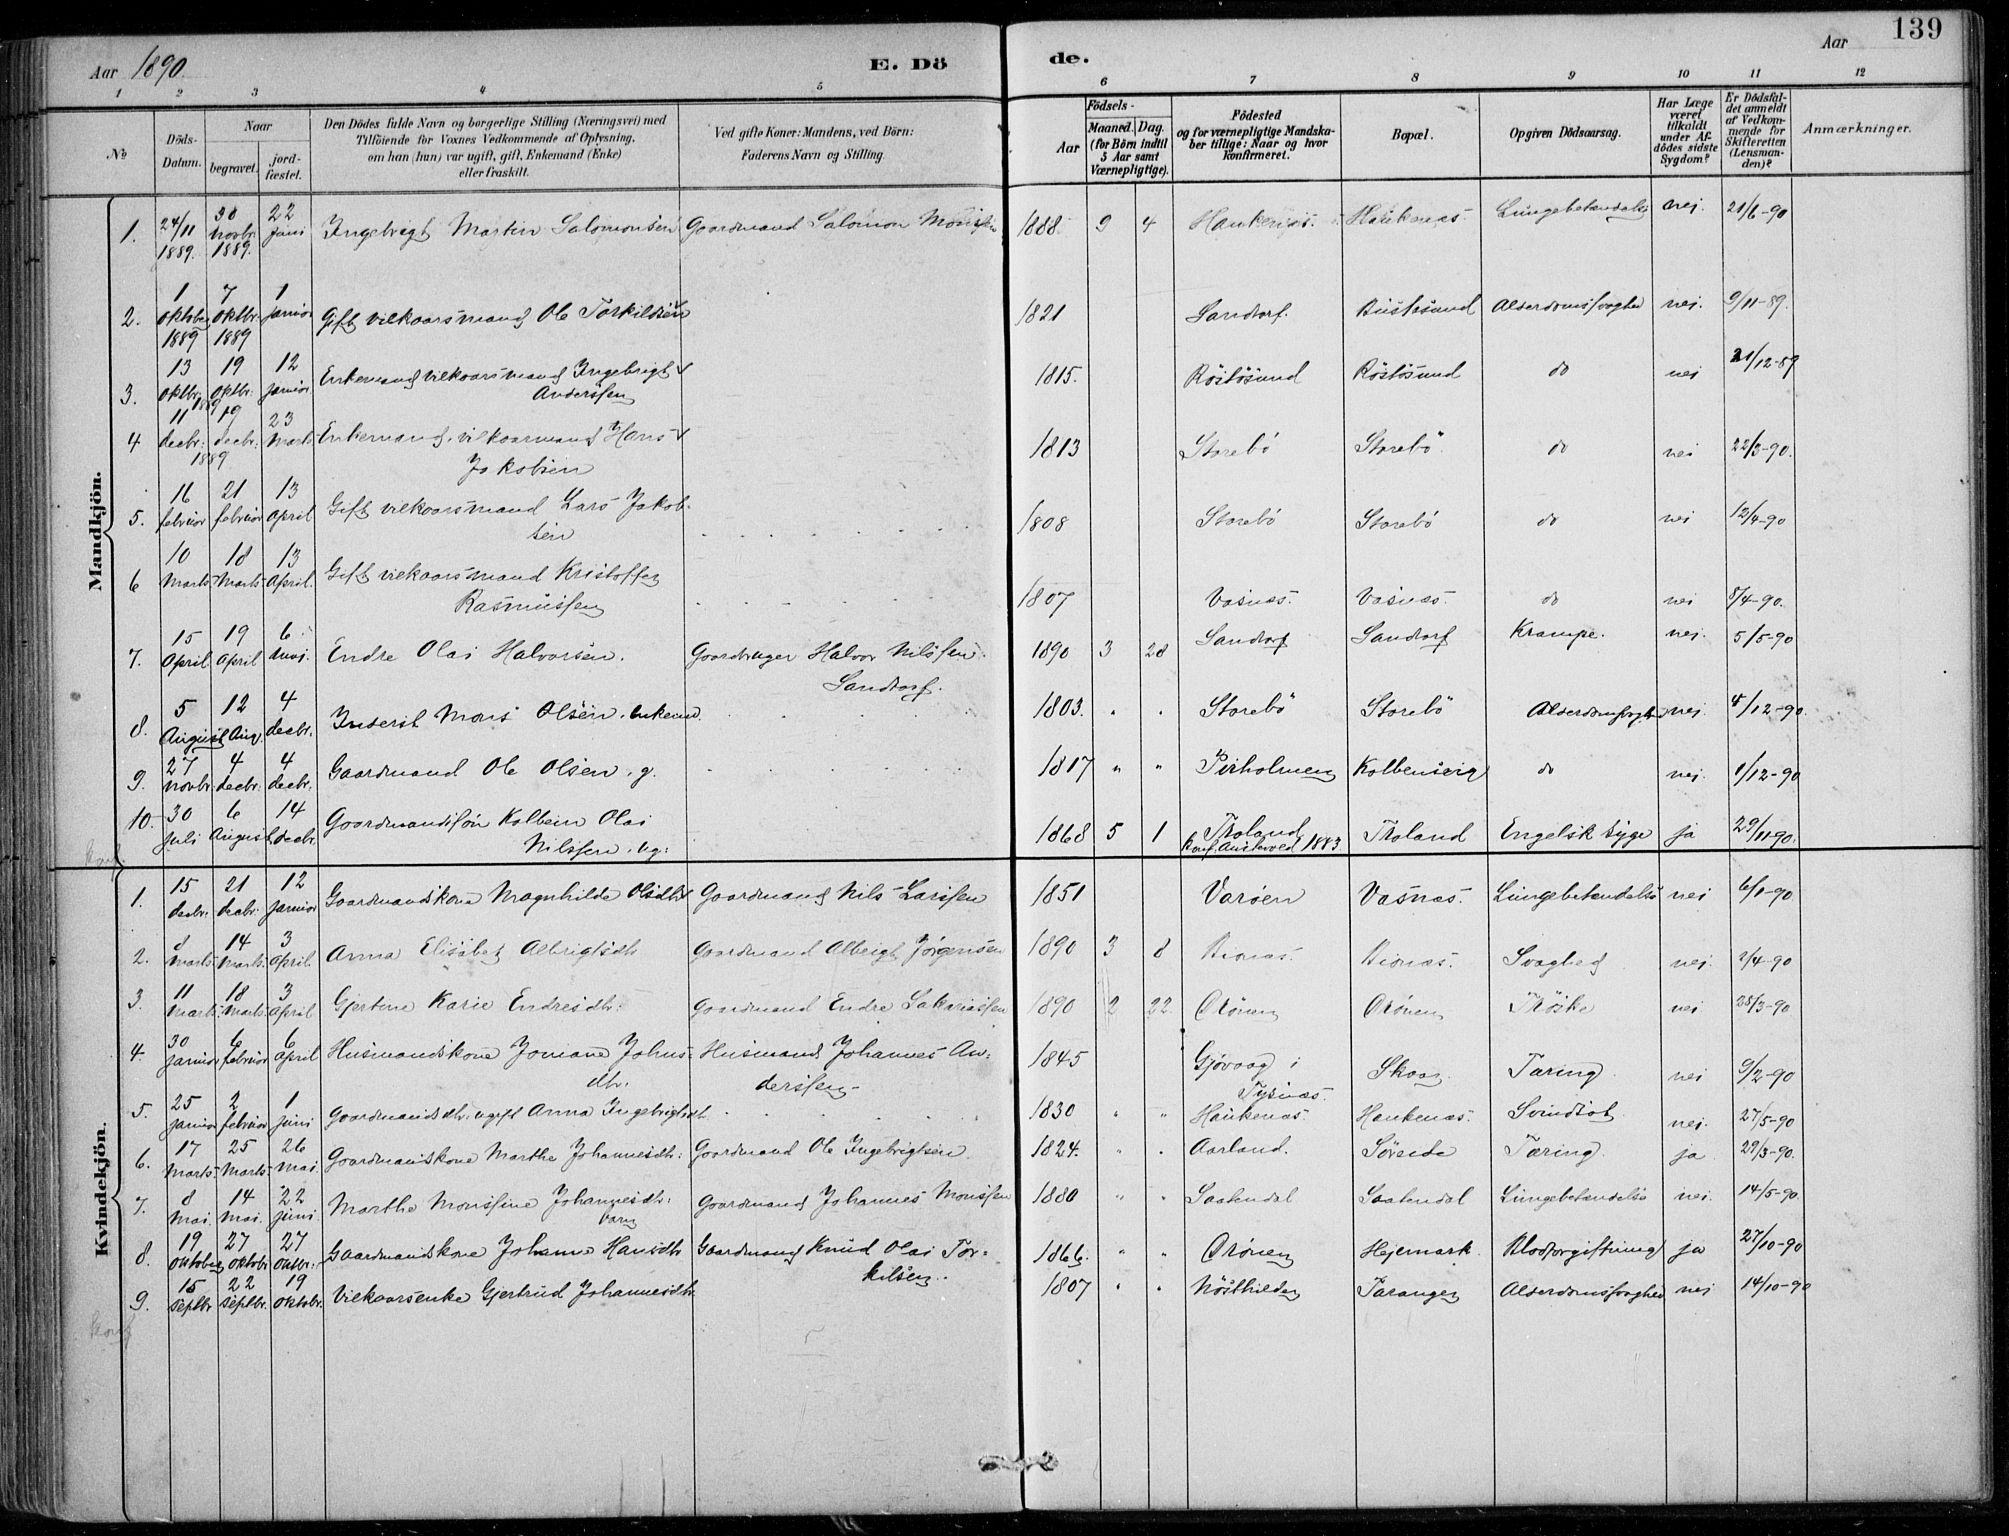 139
Aar 1890.
E. Dö
de.
Aar
1 2 3 4 5 6 7 8 9 10 11 12
№
Döds-Datum.
Naar
begravet.
jordfæstet.
Den Dödes fulde Navn og borgerlige Stilling (Næringsvei) med
Tilföiende for Voxnes Vedkommende af Oplysning,
om han (hun) var ugift, gift, Enkemand (Enke)
eller fraskilt.
Ved gifte Koner: Mandens, ved Börn:
Faderens Navn og Stilling.
Födsels-
Aar
Maaned. Dag.
(for Börn indtil
5 Aar samt
Værnepligtige).
Födested
og for værnepligtige Mandska-
ber tillige: Naar og hvor
konfirmeret.
Bopæl.
Opgiven Dödsaarsag.
Har Læge
været
tilkaldt
under Af-
dödes sidste
Sygdom?
Er Dödsfal-
det anmeldt
af Vedkom-
mende for
Skifteretten
(Lensman-
den)?
Anmærkninger.
Mandkjön.
1. 24/11 1889. 30 Novbr. 1889. 22 juni Ingebrigt Martin Salomonsen Gaardmand Salomon Monssen 1888. 9 4 Haukenæs. Haukenæs. Lungebetændelse nei. 21/6-90
2. 1 oktober 1889 7 oktbr. 1889 1 januar Gift vilkaarsmand Ole Torkildsen 1821 Sandtorf. Alderdomssvaghed nei. 9/11-89.
3. 13 oktbr. 19 oktbr. 1889 12 januar Enkemand vilkaarsmand Ingebrigt
Anderssen 1815. Röstösund Röstösund do nei 21/12-89
4 11 decbr. 19 decbr. 1889 23 Marts Enkemand. vilkaarmand Hans
Jakobsen 1813 Storebö Storebö do nei 22/3-90.
5. 16 februar 21 februar 13 April Gift vilkaarsmand Lars Jakob-
sen 1808 Storebö Storebö do nei 12/4-90
6 10 Marts 18 Marts 13 April. Gift vilkaarsmand Kristoffer
Rasmussen 1807 Vasnæs. Vasnæs. do nei 8/4-90.
7. 15 April 19 April 6 Mai. Endre Olai Halvorsen. Gaardbruger Halvor Nilssen.
Sandtorf. 1890 3 28 Sandtorf Sandtorf Krampe. nei. 5/5-90
8. 5 August 12 Aug. 4 decbr. Inderst Mons Olsen. enkemd. 1803. " " Storebö Storebö Alderdomssvaghed nei. 4/12-90.
9. 27 Novbr. 4 decbr. 4 decbr. Gaardmand Ole Olsen. g. 1817 " " Pirholmen Kolbensvig do nei. 1/12-90
10. 30 Juli 6 August 14 decbr. Gaardmandssön Kolbein Olai
Nilssen. ug: 1868 5 1 Troland
Konf. Austevold 1883 Troland Engelsk syge ja 29/11-90.
Kvindekjön.
1. 15 decbr. 21 decbr. 12 januar Gaardmandskone Magnhilde Olsdtr Gaardmand Nils Larssen 1851 Varöen Vasnæs. Lungebetændelse nei 6/1-90
2. 8 Marts 14 Marts 3 April. Anna Elisabet Albrigtsdtr Gaardmand Albrigt Jörgensen 1890 3 8 Bionæs. Bionæs. Svaghed nei. 2/4-90
3. 11 Marts 18 Marts 3 April Gjertine Karie Endresdtr: Gaardmand Endre Sakariassen 1890 2 22. Drönen Drönen Tröske nei 28/3-90
4. 30 januar 6 februar 6 April Husmandskone Joniane Johns-
dtr. Husmand Johannes An-
derssen 1845 Gjövaag i
Tysnæs. Skaar Tæring. nei 9/2-90
5. 25 januar 2 februar 1 juni Gaardmandsdtr. ugift Anna Ingebrigtsdtr. 1830 " " Haukenæs. Haukenæs. Svindsot nei. 27/5-90
6. 17 Marts 25 Marts 26 Mai. Gaardmandskone Marthe Johannesdtr. Gaardmand Ole Ingebrigtsen. 1824. " " Aarland. Söreide Tæring. ja 29/3-90.
7. 8 Mai. 14 Mai. 22 juni Marthe Monssine Johannesdtr:
barn Gaardmand Johannes Monssen 1880 " " Saatendal Saatendal Lungebetændelse nei. 14/5-90
8. 19 oktober 27 oktobr 27 oktbr. Gaardmandskone Johanna Hansdtr Gaardmand Knud Olai Tor-
kilsen. 1866. " " Drönen Hejemark. Blodforgiftning ja 27/10-90
9. 15 septbr. 22 septbr. 19 oktobr. Vilkaarsenke Gjertrud Johannesdtr. 1807 " " Nösthilden Tarangen Alderdomssvaghed nei 14/10-90